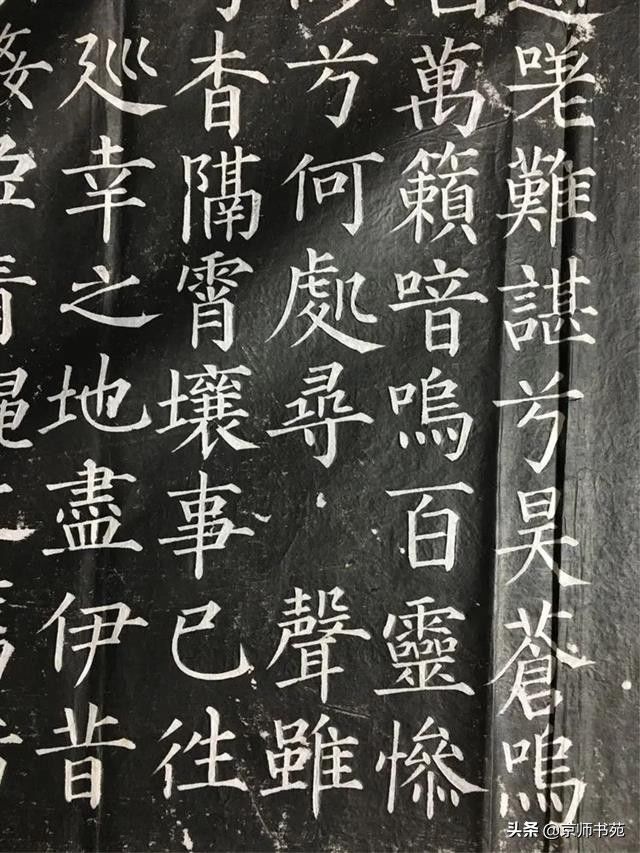 嗟難諶兮昊蒼嗚
萬籟喑嗚百靈慘
兮何處尋·聲雖
杳隔霄壤事已徃
巡幸之地盡伊昔
头条 @京师书苑